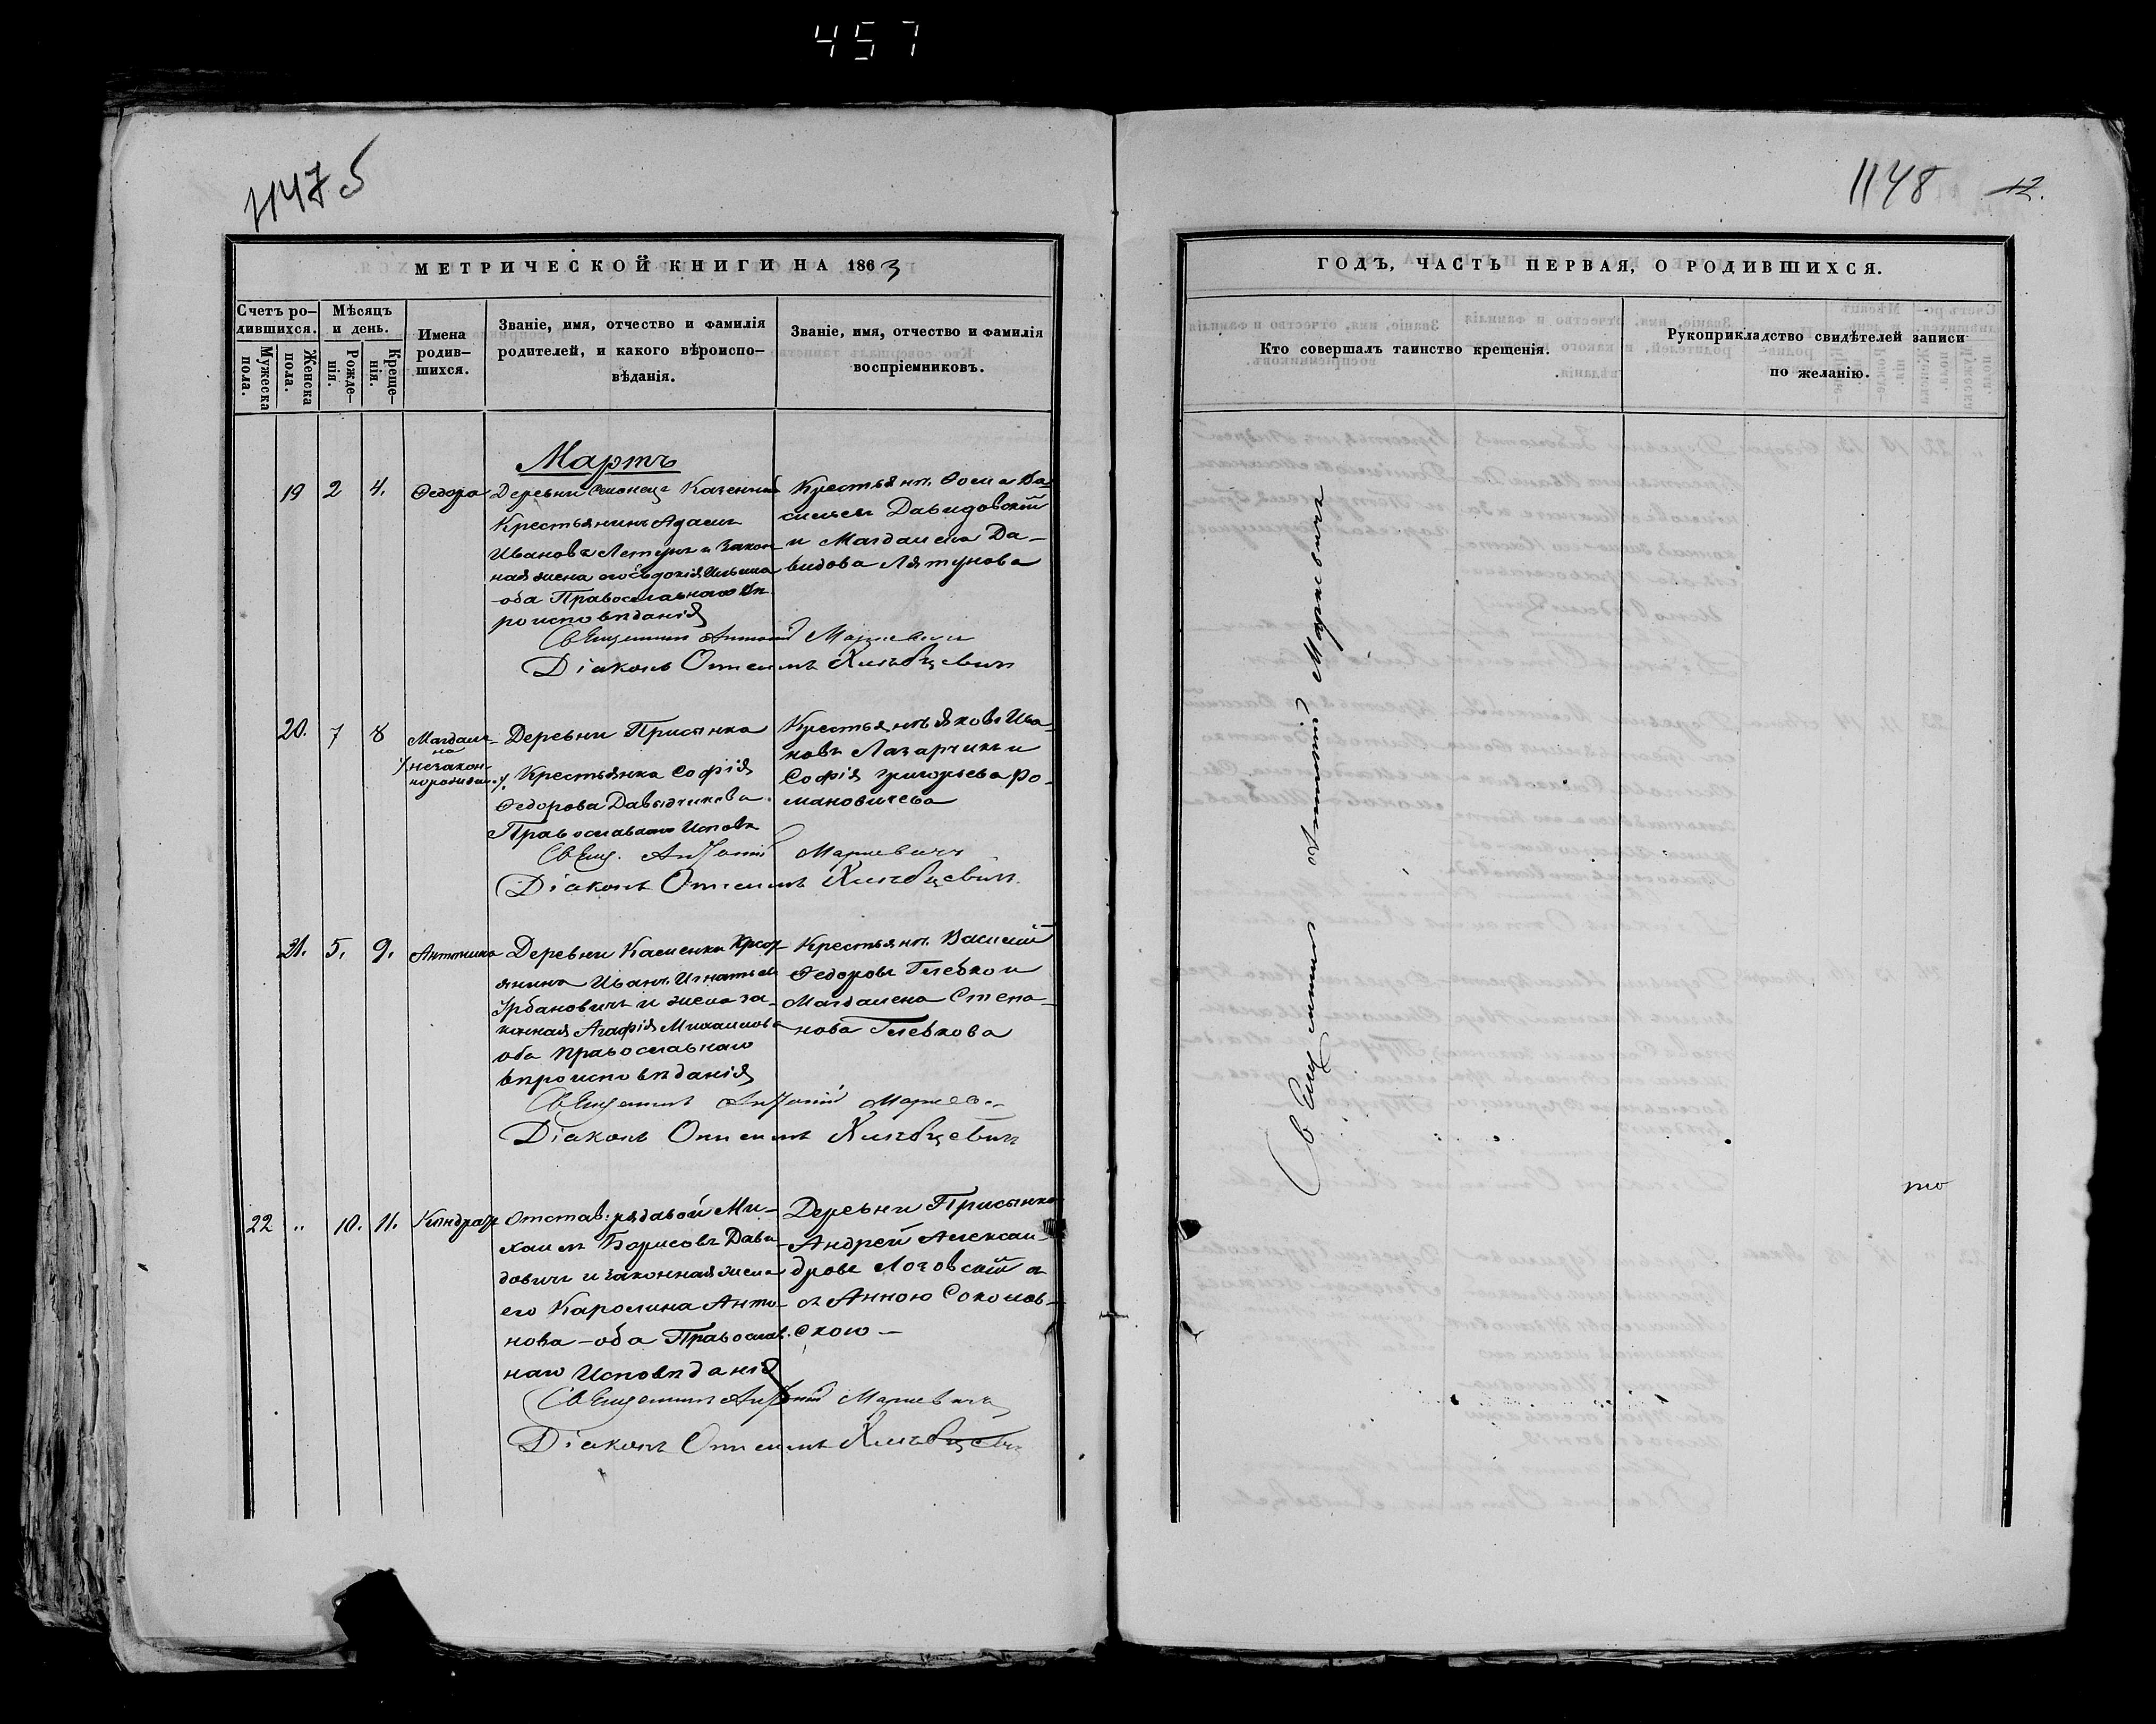 457
1147 5
МЕТРИЧЕСКОЙ КНИГИ НА 1863
Счетъ ро-
дившихся.
Мужеска
пола.
Женска
пола.
Мѣсяцъ
и день.
Рожде-
нія.
Креще-
нія.
Имена
родив-
шихся.
Званіе, имя, отчество и фамилія
родителей, и какого вѣроиспо-
вѣданія.
Званіе, имя, отчество и фамилія
воспріемниковъ.
Мартъ
19 2 4. Ѳедора
Деревни Казенный
Крестьянинъ Адамъ
Ивановъ Летунъ и Закон-
ная жена его Евдокія
оба Православнаго Вѣ
роисповѣданія
Крестьян. Ѳома Ва-
силіевъ Давидовскій
и Магдалена Да-
видова Лятунова
Священникъ Антоній Маркевичъ
Діаконъ Онисимъ Хлѣбцевичъ
20. 7 8 Магдале-
на
незакон-
норожден.
Деревни Присынка
Крестьянка Софія
Ѳедорова Давидчикова
Православнаго Исповѣ
Крестьянъ Яковъ Ива-
новъ Лазарчикъ и
Софія Григорьева Ро-
мановичева
Свящ. Антоній Маркевичъ
Діаконъ Онисимъ Хлѣбцевичъ
21. 5. 9. Антонина
Деревни Каменки Крест
янинъ Иванъ Игнатьевъ
Урбановичъ и жена за-
конная Агафія Михаилова
оба Православнаго
вѣроисповѣданія
Крестьян. Василій
Ѳедоровъ Глебко и
Магдалена Степа-
нова Глебкова
Священникъ Антоній Маркев.
Діаконъ Онисимъ Хлѣбцевичъ
22 " 10. 11. Кондратъ
Отстав: рядавой Ми-
хаилъ Борисовъ Дави-
довичъ и законная жена
его Каролина Анто-
нова - оба Православ.
наго Исповѣданія
Деревни Присынка
Андрей Алексан-
дровъ Логовскій
съ Анною Соколов-
скою -
Священникъ Антоній Маркевичъ
Діаконъ Онисимъ Хлѣбцевичъ
1148 12.
ГОДЪ, ЧАСТЬ ПЕРВАЯ, О РОДИВШИХСЯ.
Кто совершалъ таинство крещенія.
Рукоприкладство свидѣтелей записи
по желанію.
Священникъ Антоній Маркевичъ